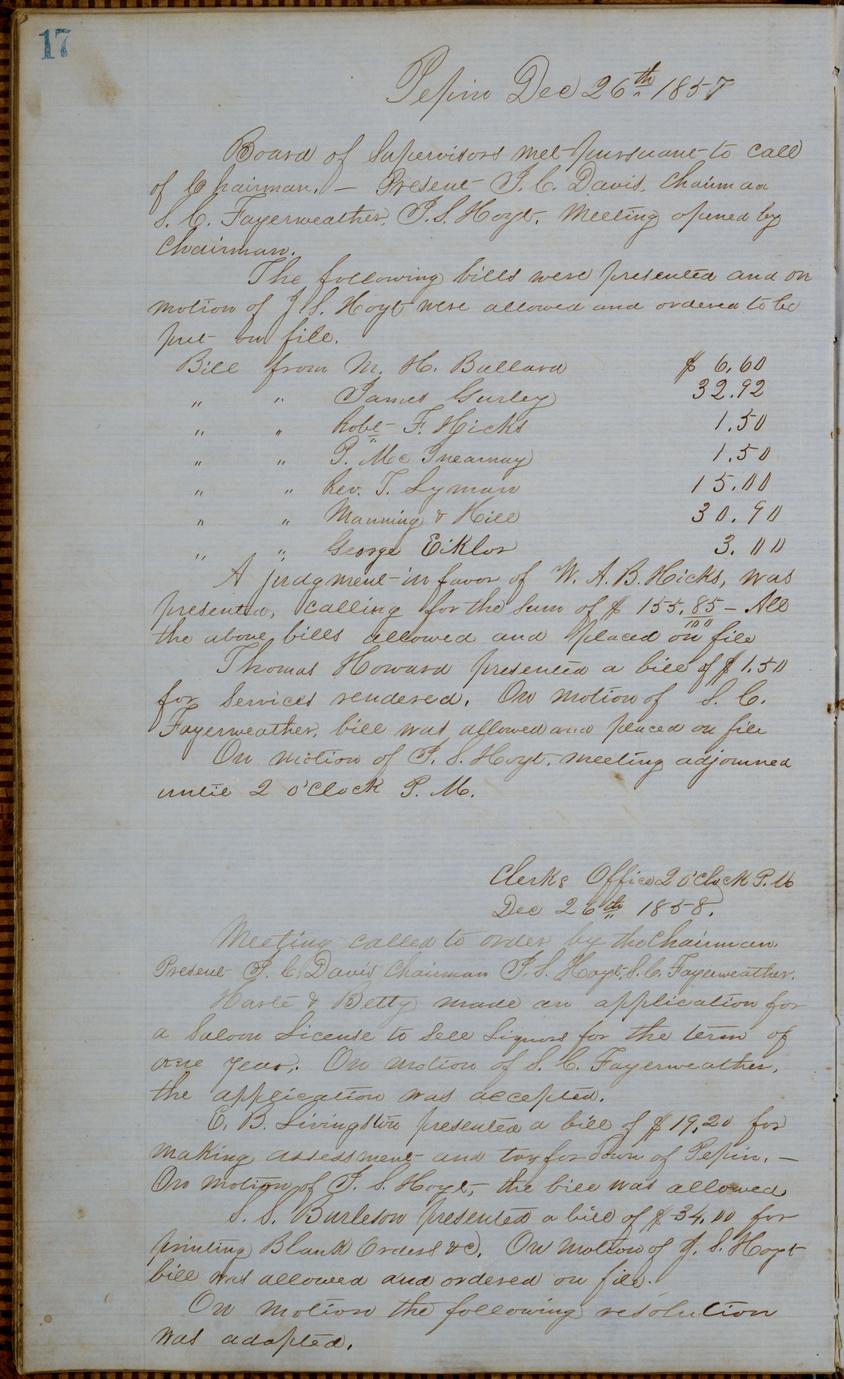 17
Pepin Dec 26th 1857
Board of Supervisors met pursuant to call
of Chairman. — Present J. C. Davis. Chairman
S. C. Fayerweather. J. S. Hoyt. Meeting opened by
Chairman.
The following bills were presented and on
motion of J S. Hoyt were allowed and ordered to be
put on file.
Bill from M. H. Ballard $ 6,60
" " James Gurley 32.92
" " Robt F. Hicks 1.50
" " P. Mc Inearnay 1.50
" " Rev. T. Lyman 15.00
" " Manning & Hill 30.90
" " George Eiklor 3.00
A judgment in favor of W. A. B. Hicks, was
presented, calling for the sum of $ 155,85/100 — All
the above bills allowed and placed on file
Thomas Howard presented a bill of $ 1.50
for Services rendered. On motion of S. C.
Fayerweather. bill was allowed and placed on file
On motion of J. S. Hoyt. meeting adjourned
until 2 o'Clock P. M.
Clerks Office 2 o'Clock P. M
Dec 26th 1858.
Meeting called to order by the Chairman.
Present J. C. Davis Chairman J. S. Hoyt, S. C. Fayerweather.
& Betty made an application for
a Saloon License to Sell Liquors for the term of
one year. On motion of S. C. Fayerweather,
the application was accepted.
E. B. Livingston presented a bill of $ 19,20 for
making assessment and tax for town of Pepin. —
On motion of J. S. Hoyt, the bill was allowed
S. S. Burleson presented a bill of $ 34,00 for
printing Blank Orders &c. On motion of J. S. Hoyt
bill was allowed and ordered on file.
On motion the following resolution
was adopted.